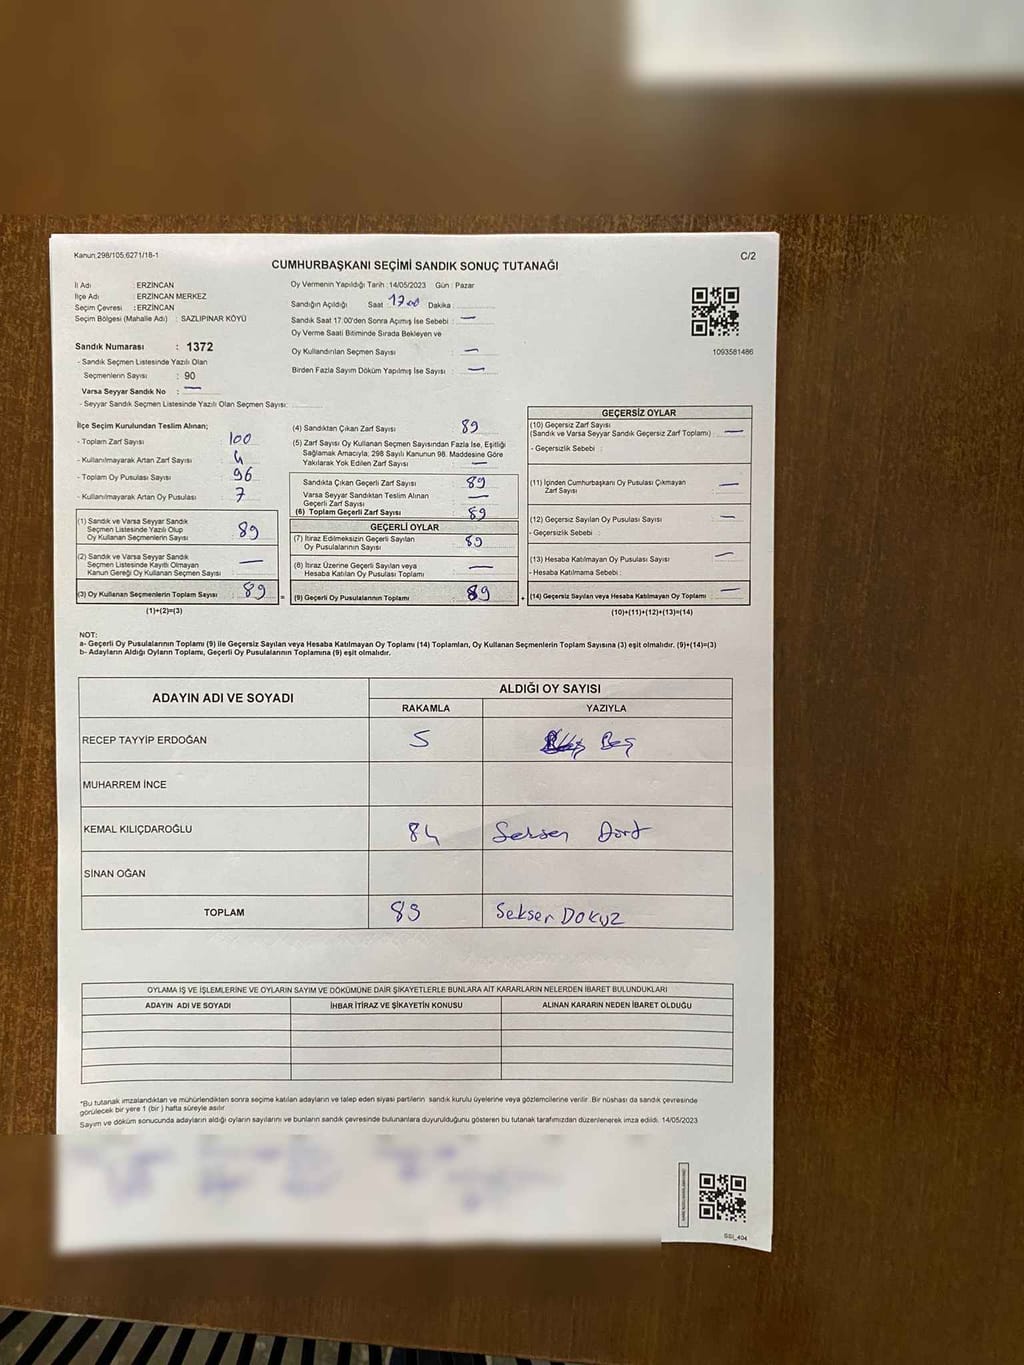 Kanun:298/105;6271/18-1
C/2
CUMHURBAŞKANI SEÇİMİ SANDIK SONUÇ TUTANAĞI
İl Adı : ERZİNCAN
İlçe Adı : ERZİNCAN MERKEZ
Seçim Çevresi : ERZİNCAN
Seçim Bölgesi (Mahalle Adı) : SAZLIPINAR KÖYÜ
Sandık Numarası : 1372
- Sandık Seçmen Listesinde Yazılı Olan
Seçmenlerin Sayısı : 90
Varsa Seyyar Sandık No : —
- Seyyar Sandık Seçmen Listesinde Yazılı Olan Seçmen Sayısı:
Oy Vermenin Yapıldığı Tarih :14/05/2023 Gün : Pazar
Sandığın Açıldığı Saat : 17 00 Dakika :
Sandık Saat 17.00'den Sonra Açımış İse Sebebi : —
Oy Verme Saati Bitiminde Sırada Bekleyen ve
Oy Kullandırılan Seçmen Sayısı : —
Birden Fazla Sayım Döküm Yapılmış İse Sayısı : —
1093581486
İlçe Seçim Kurulundan Teslim Alınan;
- Toplam Zarf Sayısı : 100
- Kullanılmayarak Artan Zarf Sayısı : 4
- Toplam Oy Pusulası Sayısı : 96
- Kullanılmayarak Artan Oy Pusulası : 7
(1) Sandık ve Varsa Seyyar Sandık
Seçmen Listesinde Yazılı Olup
Oy Kullanan Seçmenlerin Sayısı : 89
(2) Sandık ve Varsa Seyyar Sandık
Seçmen Listesinde Kayıtlı Olmayan
Kanun Gereği Oy Kullanan Seçmen Sayısı : —
(3) Oy Kullanan Seçmenlerin Toplam Sayısı : 89
(1)+(2)=(3)
(4) Sandıktan Çıkan Zarf Sayısı : 89
(5) Zarf Sayısı Oy Kullanan Seçmen Sayısından Fazla İse, Eşitliği
Sağlamak Amacıyla; 298 Sayılı Kanunun 98. Maddesine Göre
Yakılarak Yok Edilen Zarf Sayısı : —
Sandıkta Çıkan Geçerli Zarf Sayısı : 89
Varsa Seyyar Sandıktan Teslim Alınan
Geçerli Zarf Sayısı : —
(6) Toplam Geçerli Zarf Sayısı : 89
GEÇERLİ OYLAR
(7) İtiraz Edilmeksizin Geçerli Sayılan
Oy Pusulalarının Sayısı : 89
(8) İtiraz Üzerine Geçerli Sayılan veya
Hesaba Katılan Oy Pusulası Toplamı : —
= (9) Geçerli Oy Pusulalarının Toplamı : 89
GEÇERSİZ OYLAR
(10) Geçersiz Zarf Sayısı
(Sandık ve Varsa Seyyar Sandık Geçersiz Zarf Toplamı) : —
- Geçersizlik Sebebi :
(11) İçinden Cumhurbaşkanı Oy Pusulası Çıkmayan
Zarf Sayısı : —
(12) Geçersiz Sayılan Oy Pusulası Sayısı : —
- Geçersizlik Sebebi :
(13) Hesaba Katılmayan Oy Pusulası Sayısı : —
- Hesaba Katılmama Sebebi :
+ (14) Geçersiz Sayılan veya Hesaba Katılmayan Oy Toplamı : —
(10)+(11)+(12)+(13)=(14)
NOT:
a- Geçerli Oy Pusulalarının Toplamı (9) ile Geçersiz Sayılan veya Hesaba Katılmayan Oy Toplamı (14) Toplamları, Oy Kullanan Seçmenlerin Toplam Sayısına (3) eşit olmalıdır. (9)+(14)=(3)
b- Adayların Aldığı Oyların Toplamı, Geçerli Oy Pusulalarının Toplamına (9) eşit olmalıdır.
ADAYIN ADI VE SOYADI ALDIĞI OY SAYISI
RAKAMLA YAZIYLA
RECEP TAYYİP ERDOĞAN 5 Beş
MUHARREM İNCE
KEMAL KILIÇDAROĞLU 84 Seksen Dört
SİNAN OĞAN
TOPLAM 89 Seksen Dokuz
OYLAMA İŞ VE İŞLEMLERİNE VE OYLARIN SAYIM VE DÖKÜMÜNE DAİR ŞİKAYETLERLE BUNLARA AİT KARARLARIN NELERDEN İBARET BULUNDUKLARI
ADAYIN ADI VE SOYADI İHBAR İTİRAZ VE ŞİKAYETİN KONUSU ALINAN KARARIN NEDEN İBARET OLDUĞU
*Bu tutanak imzalandıktan ve mühürlendikten sonra seçime katılan adayların ve talep eden siyasi partilerin sandık kurulu üyelerine veya gözlemcilerine verilir. Bir nüshası da sandık çevresinde
görülecek bir yere 1 (bir ) hafta süreyle asılır
Sayım ve döküm sonucunda adayların aldığı oyların sayılarını ve bunların sandık çevresinde bulunanlara duyurulduğunu gösteren bu tutanak tarafımızdan düzenlenerek imza edildi. 14/05/2023
SSI_404